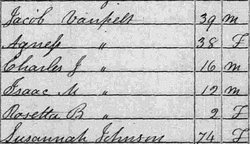 Jacob Vanpelt 39 m
Agness " 38 F
Charles J " 16 m
Isaac M " 12 m
Rosetta B " 2 F
Susannah Johnson 74 F